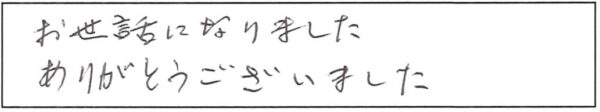 お世話になりました
ありがとうございました